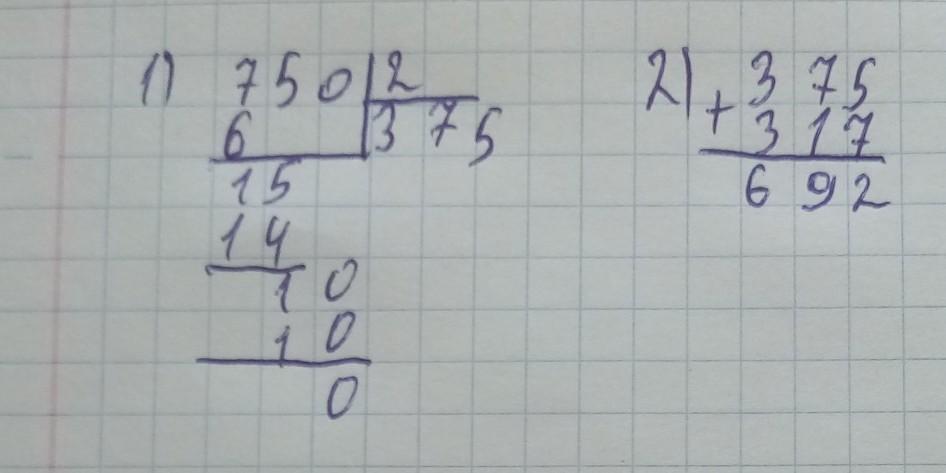 1) 750 2
6 375
15
14
10
10
0
2) + 375
317
692